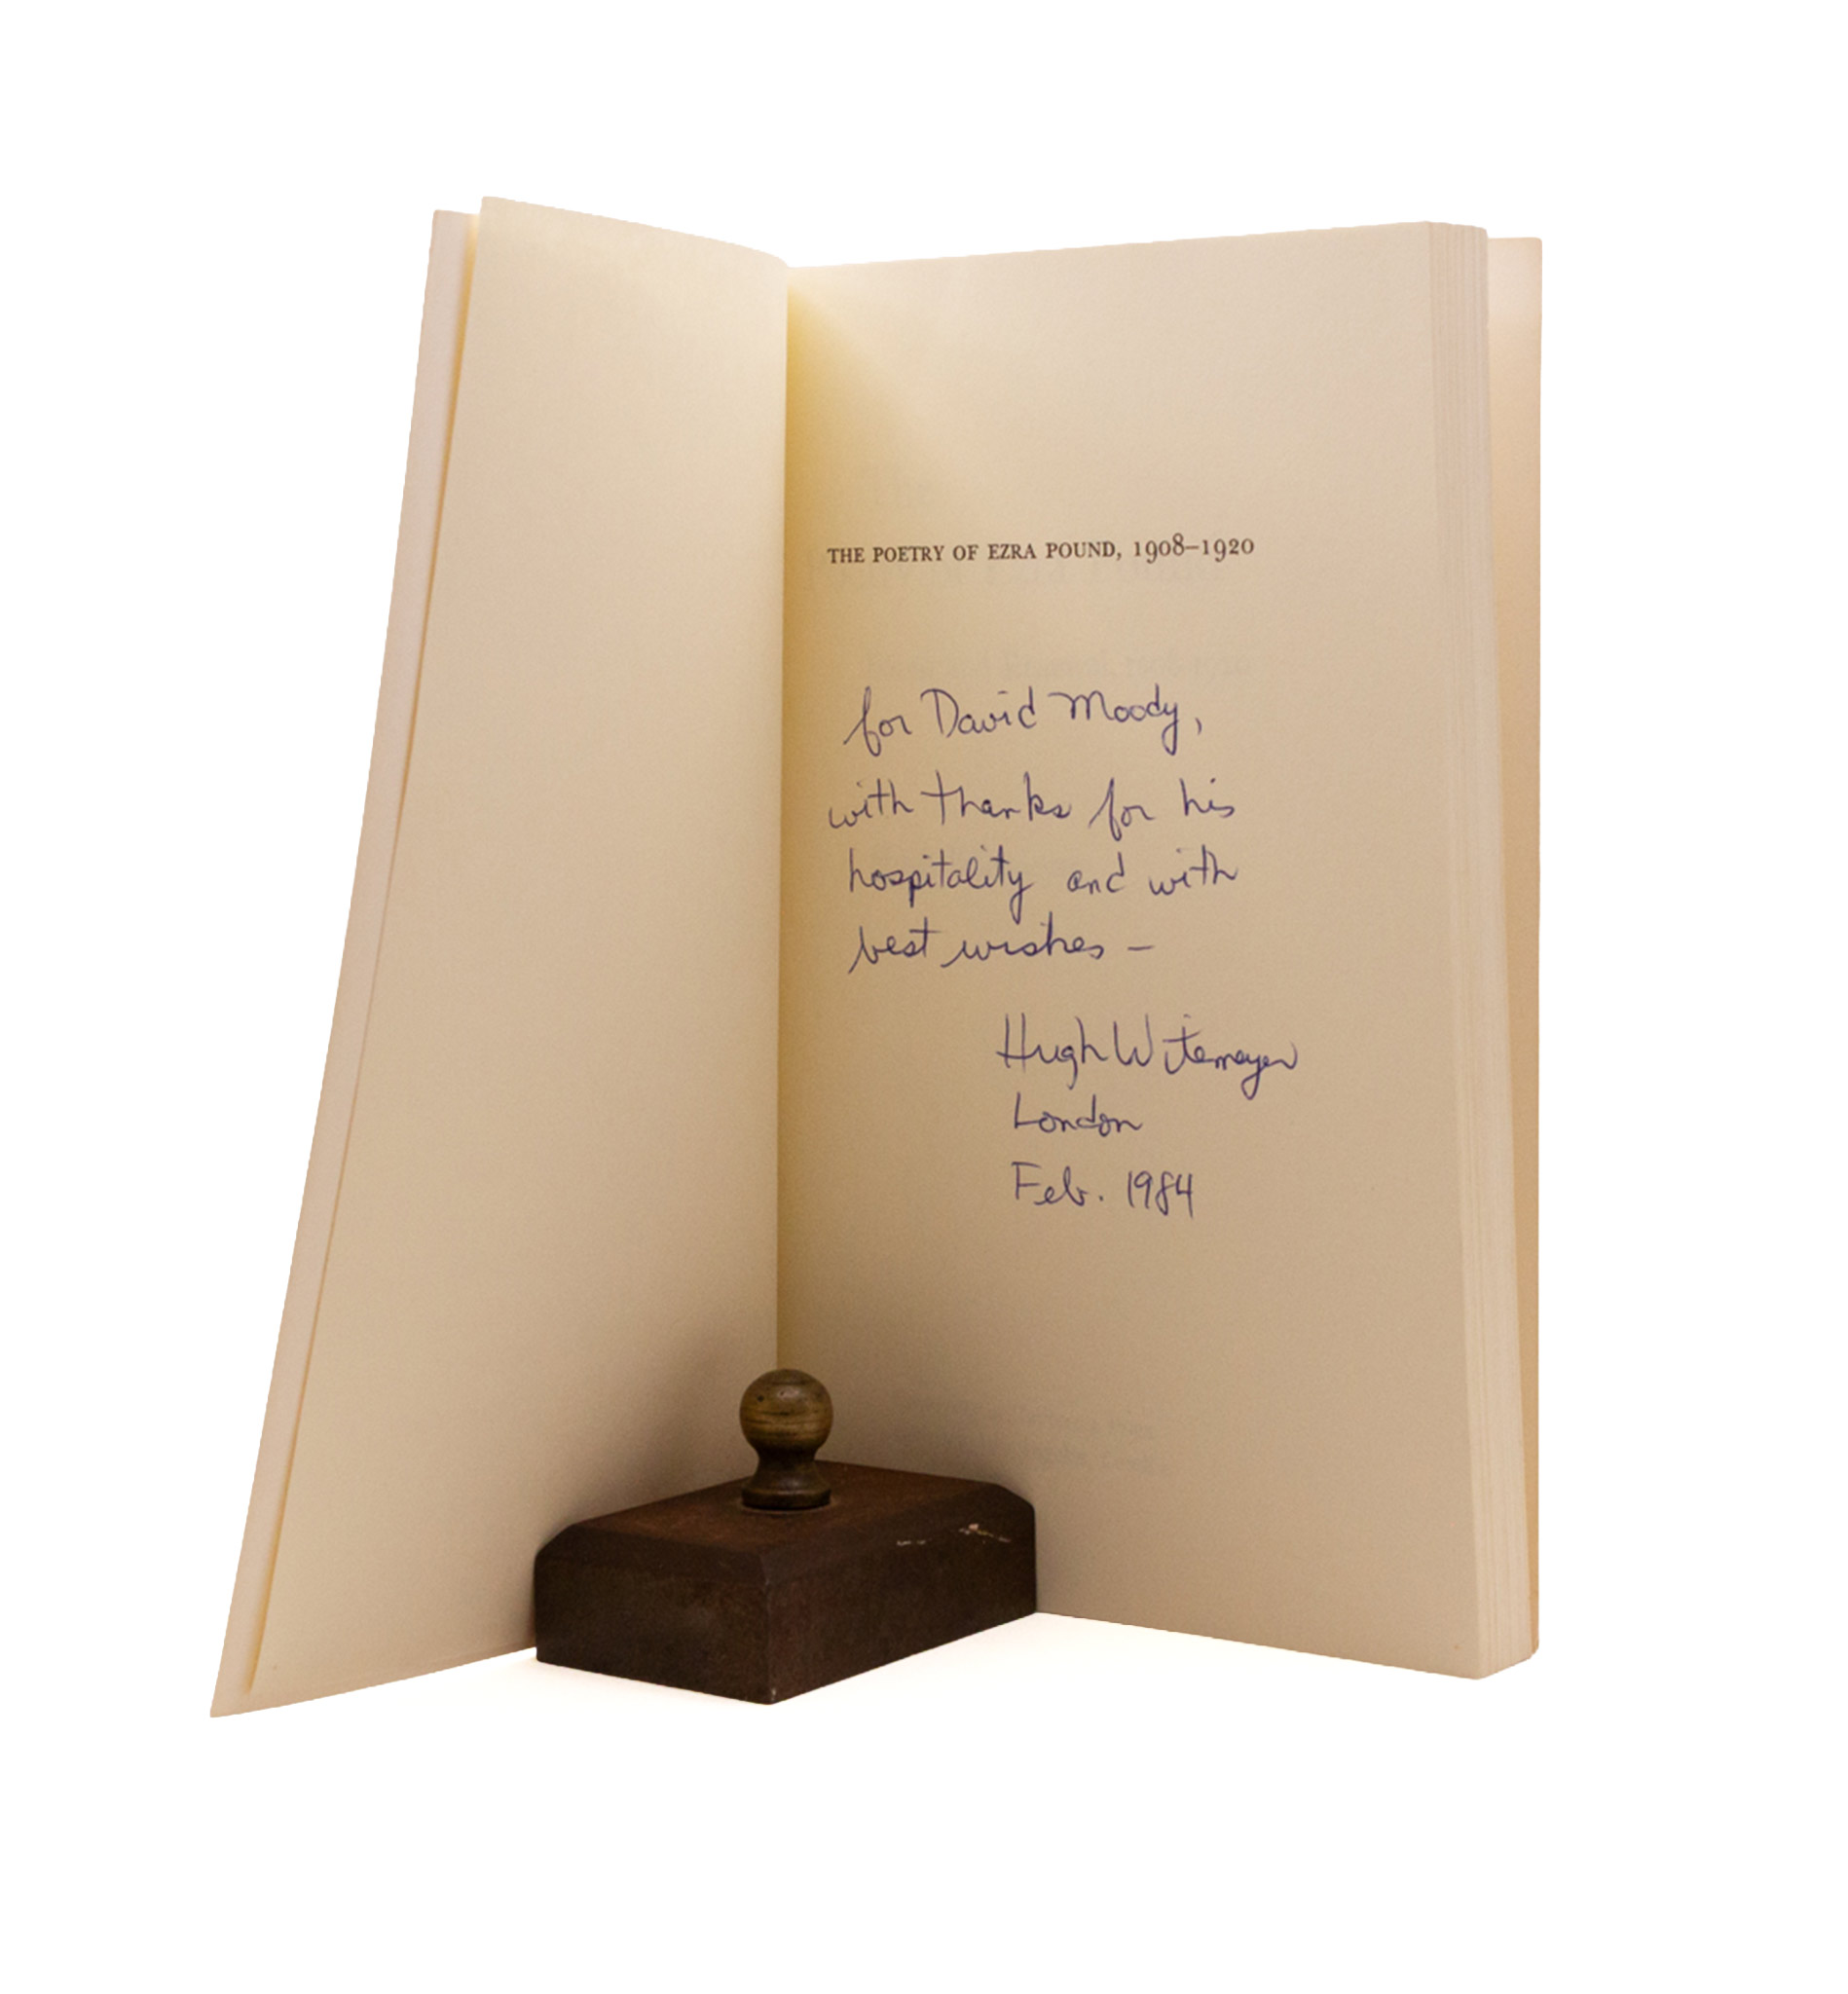 THE POETRY OF EZRA POUND, 1908–1920
for David Moody,
with thanks for his
hospitality and with
best wishes –
Hugh Witemeyer
London
Feb. 1984